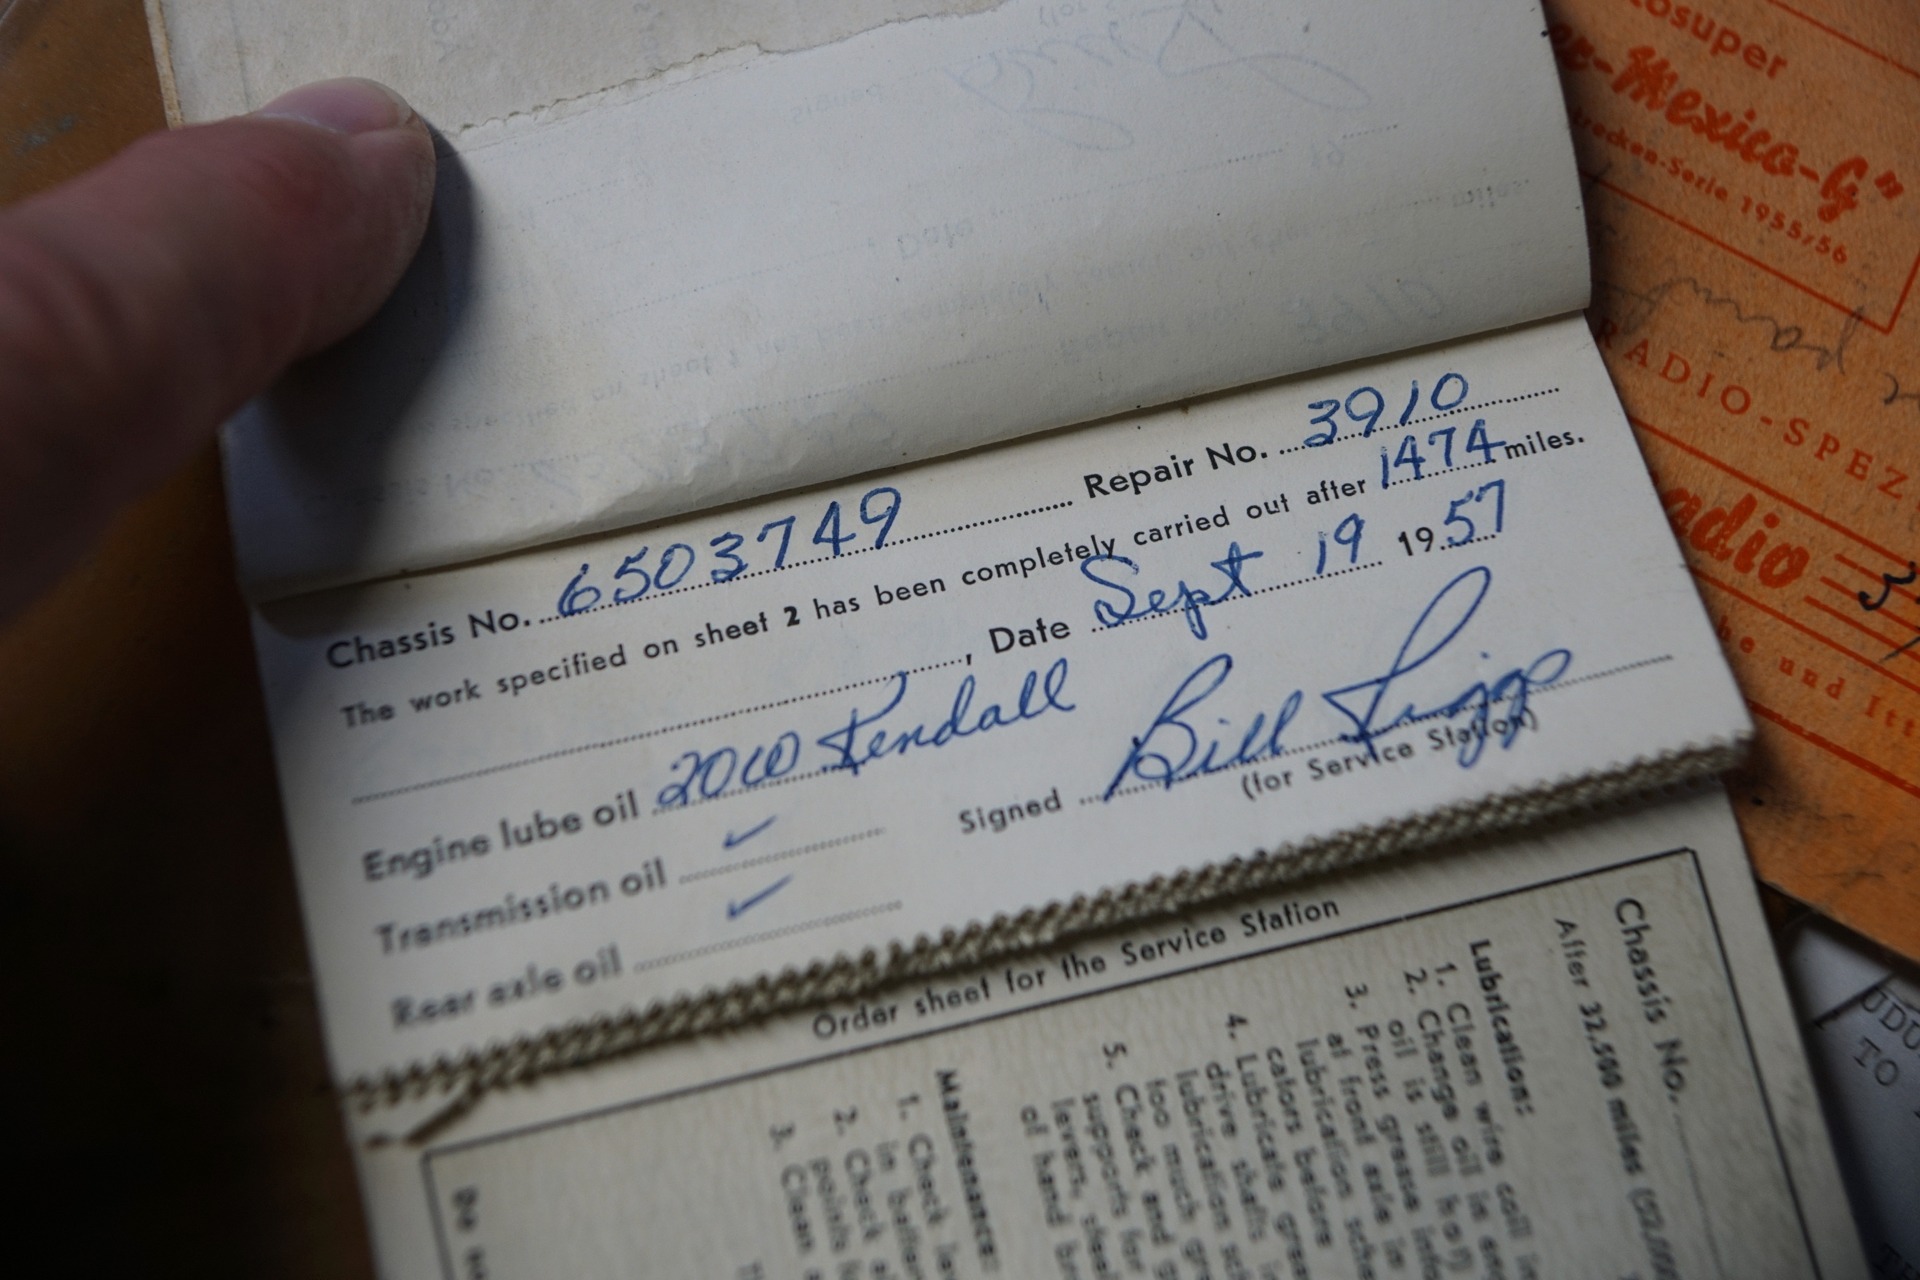 Chassis No. 6503749 Repair No. 3910
The work specified on sheet 2 has been completely carried out after 1474 miles.
, Date Sept 19 1957
Engine lube oil 20W Kendall
Transmission oil ✓
Rear axle oil ✓
Signed Bill
(for Service Station)
Order sheet for the Service Station
Chassis No.
After 32.500 miles
Lubrications:
1. Clean wire coil in
2. Change oil in
oil is still hot)
3. Press grease
at front axle in
lubrication
cators before
4. Lubricate
drive shafts
lubrication
too much
5. Check and
supports for
levers,
of hand
Maintenance:
1. Check
in
2. Check
polish
3. Clean
osuper
-Mexico-G"
-Serie 1955/56
RADIO-SPEZ
adio
und
TO